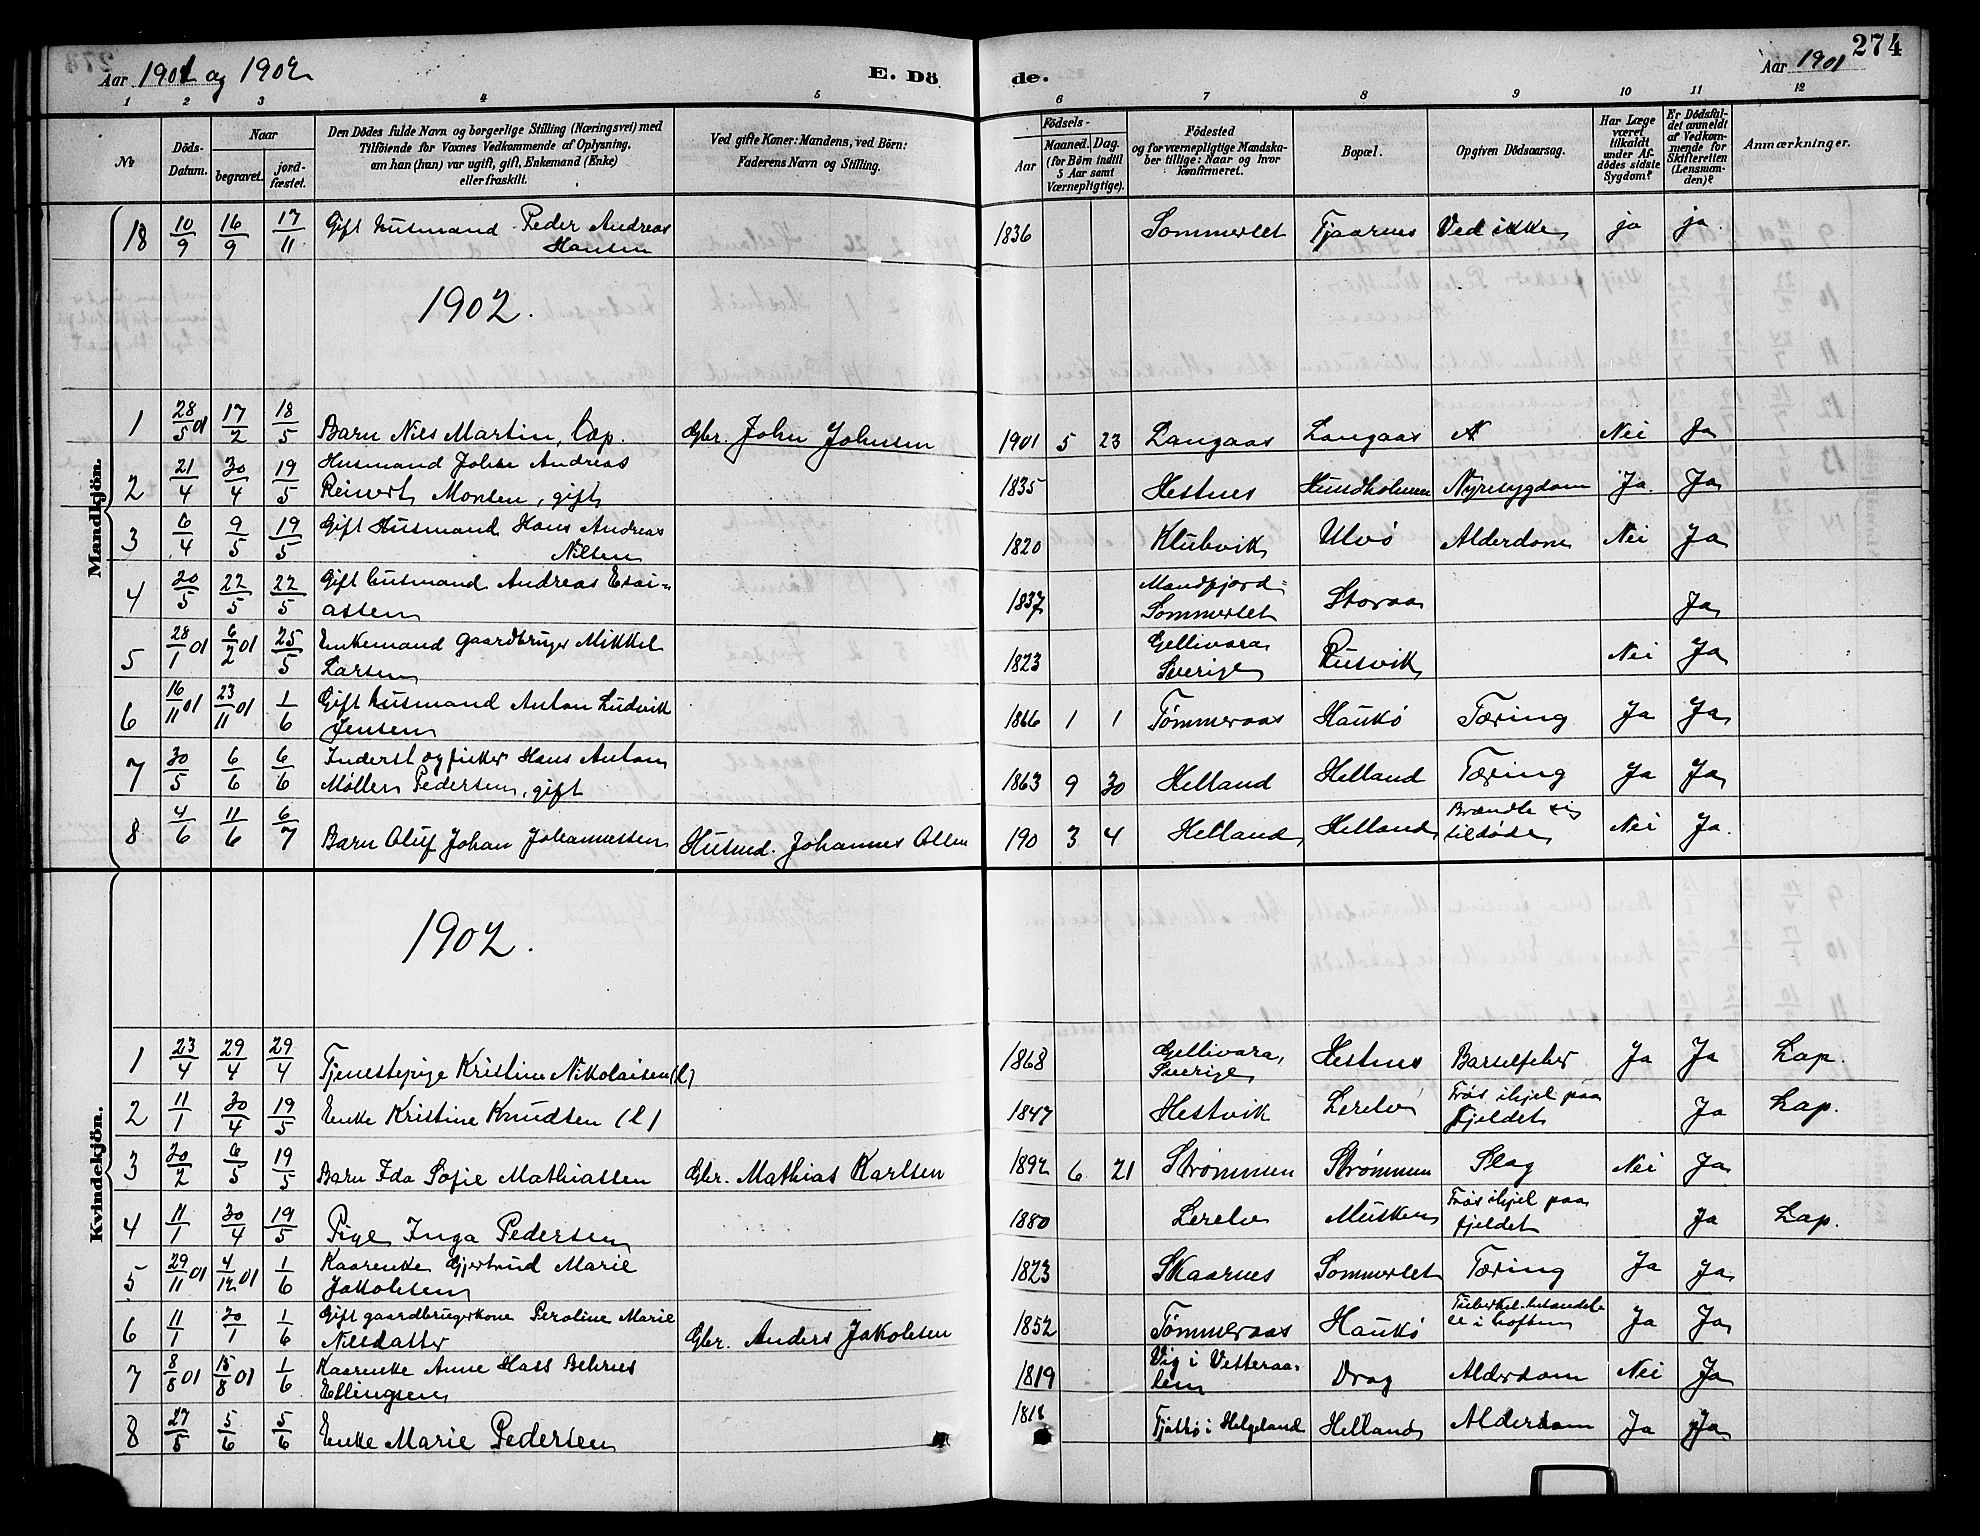 Aar 1901 og 1902 E. Dö de. Aar 1901 274
1 2 3 4 5 6 7 8 9 10 11 12
No
Döds-Datum.
Naar
begravet.
jord-fæstet.
Den Dödes fulde Navn og borgerlige Stilling (Næringsvei) med
Tilföiende for Voxnes Vedkommende af Oplysning,
om han (hun) var ugift, gift, Enkemand (Enke)
eller fraskilt.
Ved gifte Koner: Mandens, ved Börn:
Faderens Navn og Stilling.
Födsels-
Aar
Maaned. Dag.
(for Börn indtil
5 Aar samt
Værnepligtige).
Födested
og for værnepligtige Mandska-
ber tillige: Naar og hvor
konfirmeret.
Bopæl.
Opgiven Dödsaarsag.
Har Læge
været
tilkaldt
under Af-
dödes sidste
Sygdom?
Er Dödsfal-
det anmeldt
af Vedkom-
mende for
Skifteretten
(Lensman-
den)?
Anmærkninger.
Mandkjön.
18 10/9 16/9 17/11 Gift husmand Peder Andreas
Hansen 1836 Sommerset Tjaarnes Ved ikke ja ja
1902.
1 28/5 01 17/2 18/5 Barn Nils Martin, Lap. Gbr. John Johnsen 1901 5 23 Langaas Langaas Nei Ja
2 21/4 30/4 19/5 Husmand Johan Andreas
Reinert Monsen, gift 1835 Hestnes Hundholmen Nyresygdom Ja Ja
3 6/4 9/5 19/5 Gift Husmand Hans Andreas
Nilsen 1820 Klubvik Ulvö Alderdom Nei Ja
4 20/5 22/5 22/5 Gift husmand Andreas Esai=
assen 1837 Mandfjord=
Sommerset Storaa Ja
5 28/1 01 6/2 01 25/5 Enkemand gaardbruger Mikkel
Larsen 1823 Gellivara
Sverige Rusvik Nei Ja
6 16/11 01 23/11 01 1/6 Gift husmand Anton Ludvik
Jensen 1866 1 1 Tømmeraas Haukö Tæring Ja Ja
7 30/5 6/6 6/6 Inderst og fisker Hans Anton
Møller Pedersen, gift 1863 9 30 Helland Helland Tæring Ja Ja
8 4/6 11/6 6/7 Barn Oluf Johan Johannessen Husmd. Johannes Olsen 190 3 4 Helland Helland Brændte sig
tildöde Nei Ja
Kvindekjön.
1902.
1 23/4 29/4 29/4 Tjenestepige Kristine Nikolaisen (l) 1868 Gellivara,
Sverige Hestnes Barselfeber Ja Ja Lap.
2 11/1 30/4 19/5 Enke Kristine Knudsen (l) 1847 Hestvik Lerelv Frös ihjel paa
fjeldet Ja Lap.
3 20/2 6/5 19/5 Barn Ida Sofie Mathiassen Gbr. Mathias Karlsen 1892 6 21 Strømmen Strømmen Slag Nei Ja
4 11/1 30/4 19/5 Pige Inga Pedersen 1880 Lerelv Musken Frös ihjel paa
fjeldet Ja Lap.
5 29/11 01 4/12 01 1/6 Kaarenke Gjertrud Marie
Jakobsen 1823 Skaarnes Sommerset Tæring Ja Ja
6 11/1 20/1 1/6 Gift gaardbrugerkone Peroline Marie
Nilsdatter Gbr. Anders Jakobsen 1852 Tømmeraas Haukö i hoften Ja Ja
7 8/8 01 15/8 01 1/6 Kaarenke Anne Hass Behrnes
Ellingsen 1819 Vig i Vesteraa=
len Drag Alderdom Nei Ja
8 27/5 5/6 5/6 Enke Marie Pedersen 1818 Tjøttö i Helgeland Helland Alderdom Ja Ja